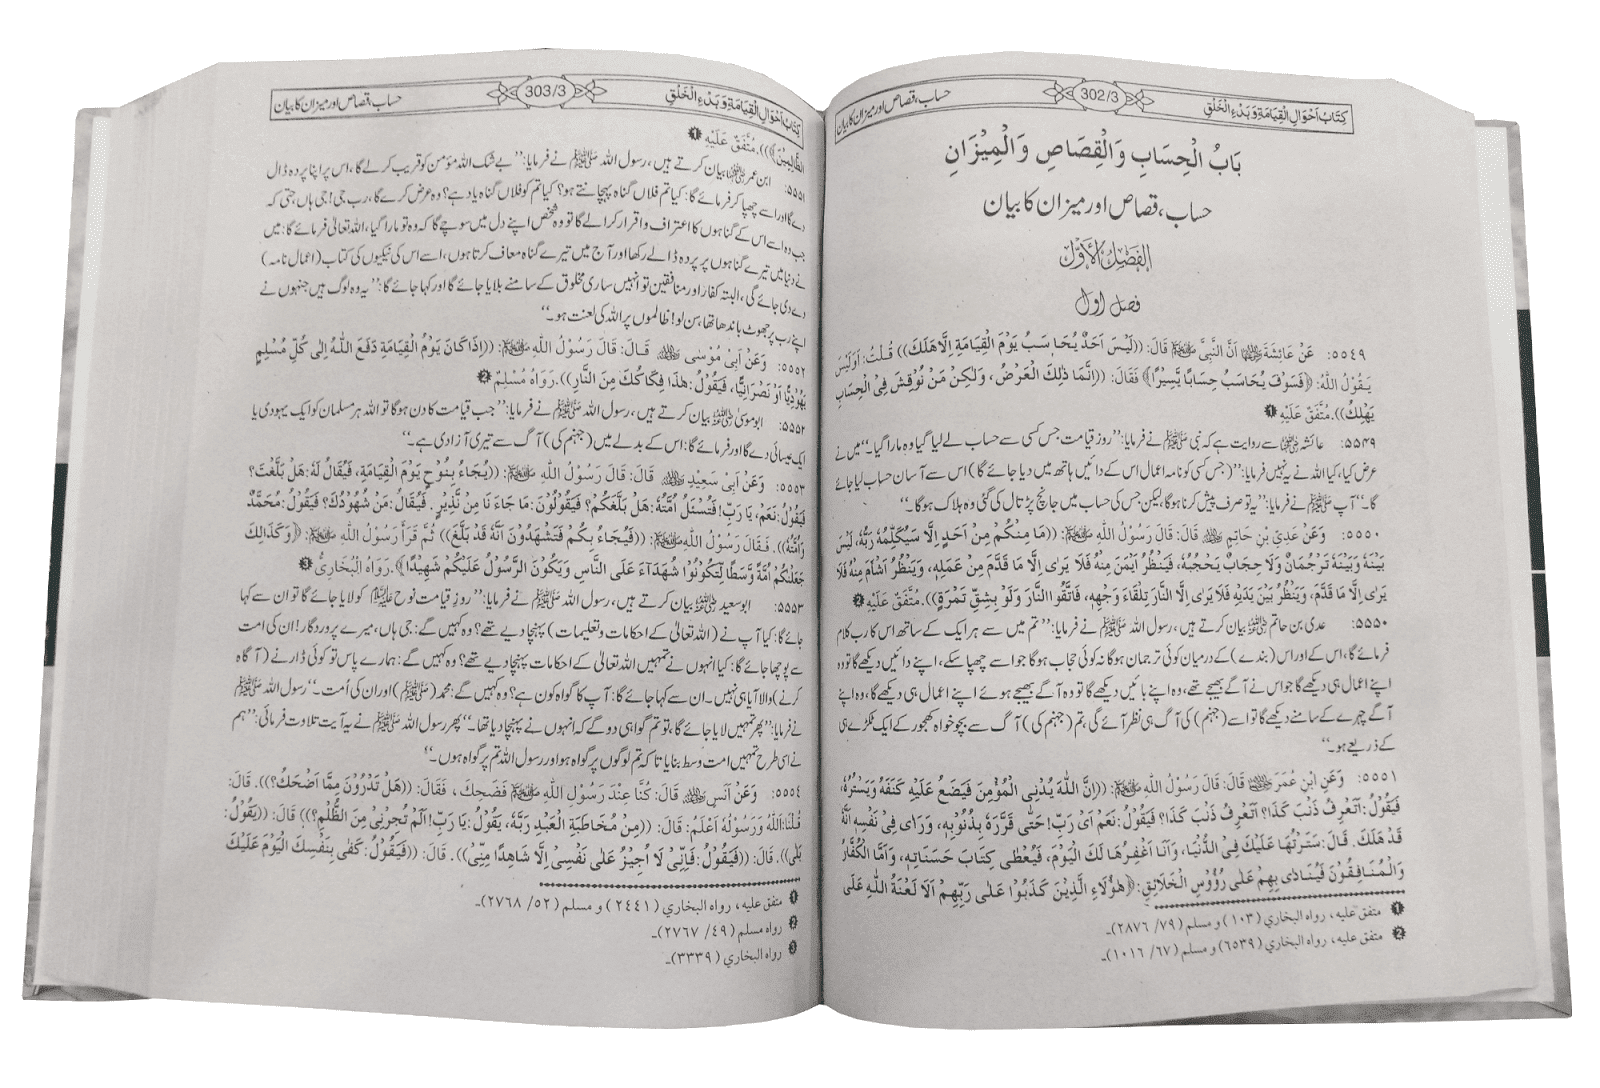 كِتَابُ اَحْوَالِ الْقِيَامَةِ وَبَدْءِ الْخَلْقِ 302/3 حساب، قصاص اور میزان کا بیان
بَابُ الْحِسَابِ وَالْقِصَاصِ وَالْمِيْزَانِ
حساب، قصاص اور میزان کا بیان
اَلْفَصْلُ الْاَوَّلُ
فصل اول
٥٥٤٩: عَنْ عَائِشَةَ رضی اللہ عنہا اَنَّ النَّبِیَّ ﷺ قَالَ: ((لَيْسَ اَحَدٌ يُحَاسَبُ يَوْمَ الْقِيَامَةِ اِلَّا هَلَكَ)) قُلْتُ: اَوَلَيْسَ
يَقُوْلُ اللّٰهُ: ﴿فَسَوْفَ يُحَاسَبُ حِسَابًا يَّسِيْرًا﴾ فَقَالَ: ((اِنَّمَا ذٰلِكَ الْعَرْضُ، وَلٰكِنْ مَنْ نُوْقِشَ فِی الْحِسَابِ
يَهْلِكُ)). مُتَّفَقٌ عَلَيْهِ ❶
۵۵۴۹: عائشہ رضی اللہ عنہا سے روایت ہے کہ نبی ﷺ نے فرمایا: ’’روز قیامت جس کسی سے حساب لے لیا گیا وہ مارا گیا۔‘‘ میں نے
عرض کیا، کیا اللہ نے یہ نہیں فرمایا: ’’(جس کسی کو نامہ اعمال اس کے دائیں ہاتھ میں دیا جائے گا) اس سے آسان حساب لیا جائے
گا۔‘‘ آپ ﷺ نے فرمایا: ’’یہ تو صرف پیش کرنا ہوگا، لیکن جس کی حساب میں جانچ پڑتال کی گئی وہ ہلاک ہوگا۔‘‘
٥٥٥٠: وَعَنْ عَدِیِّ بْنِ حَاتِمٍ رضی اللہ عنہ قَالَ: قَالَ رَسُوْلُ اللّٰهِ ﷺ: ((مَا مِنْكُمْ مِنْ اَحَدٍ اِلَّا سَيُكَلِّمُهٗ رَبُّهٗ، لَيْسَ
بَيْنَهٗ وَبَيْنَهٗ تَرْجُمَانٌ وَلَا حِجَابٌ يَحْجُبُهٗ، فَيَنْظُرُ اَيْمَنَ مِنْهُ فَلَا يَرٰی اِلَّا مَا قَدَّمَ مِنْ عَمَلِهٖ، وَيَنْظُرُ اَشْاَمَ مِنْهُ فَلَا
يَرٰی اِلَّا مَا قَدَّمَ، وَيَنْظُرُ بَيْنَ يَدَيْهِ فَلَا يَرٰی اِلَّا النَّارَ تِلْقَاءَ وَجْهِهٖ، فَاتَّقُوا النَّارَ وَلَوْ بِشِقِّ تَمْرَةٍ)). مُتَّفَقٌ عَلَيْهِ ❷
۵۵۵۰: عدی بن حاتم رضی اللہ عنہ بیان کرتے ہیں، رسول اللہ ﷺ نے فرمایا: ’’تم میں سے ہر ایک کے ساتھ اس کا رب کلام
فرمائے گا، اس کے اور اس (بندے) کے درمیان کوئی ترجمان ہوگا نہ کوئی حجاب ہوگا جو اسے چھپا سکے، اپنے دائیں دیکھے گا تو وہ
اپنے اعمال ہی دیکھے گا جو اس نے آگے بھیجے تھے، وہ اپنے بائیں دیکھے گا تو وہ آگے بھیجے ہوئے اپنے اعمال ہی دیکھے گا، وہ اپنے
آگے چہرے کے سامنے دیکھے گا تو اسے (جہنم) کی آگ ہی نظر آئے گی، تم (جہنم کی) آگ سے بچو خواہ کھجور کے ایک ٹکڑے ہی
کے ذریعے ہو۔‘‘
٥٥٥١: وَعَنِ ابْنِ عُمَرَ رضی اللہ عنہ قَالَ: قَالَ رَسُوْلُ اللّٰهِ ﷺ: ((اِنَّ اللّٰهَ يُدْنِی الْمُؤْمِنَ فَيَضَعُ عَلَيْهِ كَنَفَهٗ وَيَسْتُرُهٗ،
فَيَقُوْلُ: اَتَعْرِفُ ذَنْبَ كَذَا؟ اَتَعْرِفُ ذَنْبَ كَذَا؟ فَيَقُوْلُ: نَعَمْ اَیْ رَبِّ! حَتّٰی قَرَّرَهٗ بِذُنُوْبِهٖ، وَرَاٰی فِیْ نَفْسِهٖ اَنَّهٗ
قَدْ هَلَكَ. قَالَ: سَتَرْتُهَا عَلَيْكَ فِی الدُّنْيَا، وَاَنَا اَغْفِرُهَا لَكَ الْيَوْمَ، فَيُعْطٰی كِتَابَ حَسَنَاتِهٖ، وَاَمَّا الْكُفَّارُ
وَالْمُنَافِقُوْنَ فَيُنَادٰی بِهِمْ عَلٰی رُؤُوْسِ الْخَلَائِقِ: ﴿هٰؤُلَاءِ الَّذِيْنَ كَذَبُوْا عَلٰی رَبِّهِمْ اَلَا لَعْنَةُ اللّٰهِ عَلَی
❶ متفق عليه، رواه البخاري (١٠٣) و مسلم (٧٩/ ٢٨٧٦)۔
❷ متفق عليه، رواه البخاري (٦٥٣٩) و مسلم (٦٧/ ١٠١٦)۔
كِتَابُ اَحْوَالِ الْقِيَامَةِ وَبَدْءِ الْخَلْقِ 303/3 حساب، قصاص اور میزان کا بیان
الظَّالِمِيْنَ﴾)). مُتَّفَقٌ عَلَيْهِ ❶
۵۵۵۱: ابن عمر رضی اللہ عنہما بیان کرتے ہیں، رسول اللہ ﷺ نے فرمایا: ’’بے شک اللہ مؤمن کو قریب کرلے گا، اس پر اپنا پردہ ڈال
دے گا اور اسے چھپا کر فرمائے گا: کیا تم فلاں گناہ پہچانتے ہو؟ کیا تم کو فلاں گناہ یاد ہے؟ وہ عرض کرے گا، رب جی! جی ہاں، حتی کہ
جب وہ اسے اس کے گناہوں کا اعتراف و اقرار کرا لے گا تو وہ شخص اپنے دل میں سوچے گا کہ وہ تو مارا گیا، اللہ تعالیٰ فرمائے گا: میں
نے دنیا میں تیرے گناہوں پر پردہ ڈالے رکھا اور آج میں تیرے گناہ معاف کرتا ہوں، اسے اس کی نیکیوں کی کتاب (اعمال نامہ)
دے دی جائے گی، البتہ کفار اور منافقین تو انہیں ساری مخلوق کے سامنے بلایا جائے گا اور کہا جائے گا: ’’یہ وہ لوگ ہیں جنہوں نے
اپنے رب پر جھوٹ باندھا تھا، سن لو! ظالموں پر اللہ کی لعنت ہو۔‘‘
٥٥٥٢: وَعَنْ اَبِیْ مُوْسٰی رضی اللہ عنہ قَالَ: قَالَ رَسُوْلُ اللّٰهِ ﷺ: ((اِذَا كَانَ يَوْمُ الْقِيَامَةِ دَفَعَ اللّٰهُ اِلٰی كُلِّ مُسْلِمٍ
يَهُوْدِيًّا اَوْ نَصْرَانِيًّا، فَيَقُوْلُ: هٰذَا فِكَاكُكَ مِنَ النَّارِ)). رَوَاهُ مُسْلِمٌ ❷
۵۵۵۲: ابوموسیٰ رضی اللہ عنہ بیان کرتے ہیں، رسول اللہ ﷺ نے فرمایا: ’’جب قیامت کا دن ہوگا تو اللہ ہر مسلمان کو ایک یہودی یا
ایک عیسائی دے گا اور فرمائے گا: اس کے بدلے میں (جہنم کی) آگ سے تیری آزادی ہے۔‘‘
٥٥٥٣: وَعَنْ اَبِیْ سَعِيْدٍ رضی اللہ عنہ قَالَ: قَالَ رَسُوْلُ اللّٰهِ ﷺ: ((يُجَاءُ بِنُوْحٍ يَوْمَ الْقِيَامَةِ، فَيُقَالُ لَهٗ: هَلْ بَلَّغْتَ؟
فَيَقُوْلُ: نَعَمْ، يَا رَبِّ! فَتُسْئَلُ اُمَّتُهٗ: هَلْ بَلَّغَكُمْ؟ فَيَقُوْلُوْنَ: مَا جَاءَ نَا مِنْ نَّذِيْرٍ. فَيُقَالُ: مَنْ شُهُوْدُكَ؟ فَيَقُوْلُ: مُحَمَّدٌ
وَاُمَّتُهٗ)). فَقَالَ رَسُوْلُ اللّٰهِ ﷺ: ((فَيُجَاءُ بِكُمْ فَتَشْهَدُوْنَ اَنَّهٗ قَدْ بَلَّغَ)) ثُمَّ قَرَاَ رَسُوْلُ اللّٰهِ ﷺ: ﴿وَكَذٰلِكَ
جَعَلْنٰكُمْ اُمَّةً وَّسَطًا لِّتَكُوْنُوْا شُهَدَآءَ عَلَی النَّاسِ وَيَكُوْنَ الرَّسُوْلُ عَلَيْكُمْ شَهِيْدًا﴾. رَوَاهُ الْبُخَارِیُّ ❸
۵۵۵۳: ابوسعید رضی اللہ عنہ بیان کرتے ہیں، رسول اللہ ﷺ نے فرمایا: ’’روز قیامت نوح علیہ السلام کو لایا جائے گا تو ان سے کہا
جائے گا: کیا آپ نے (اللہ تعالیٰ کے احکامات و تعلیمات) پہنچا دیے تھے؟ وہ کہیں گے: جی ہاں، میرے پروردگار! ان کی امت
سے پوچھا جائے گا: کیا انہوں نے تمہیں اللہ تعالیٰ کے احکامات پہنچا دیے تھے؟ وہ کہیں گے: ہمارے پاس تو کوئی ڈارنے (آگاہ
کرنے) والا آیا ہی نہیں۔ ان سے کہا جائے گا: آپ کا گواہ کون ہے؟ وہ کہیں گے: محمد (ﷺ) اور ان کی اُمت۔‘‘ رسول اللہ ﷺ
نے فرمایا: ’’پھر تمہیں لایا جائے گا، تو تم گواہی دو گے کہ انہوں نے پہنچا دیا تھا۔‘‘ پھر رسول اللہ ﷺ نے یہ آیت تلاوت فرمائی: ’’ہم
نے اسی طرح تمہیں امت وسط بنایا تا کہ تم لوگوں پر گواہ ہو اور رسول اللہ تم پر گواہ ہوں۔‘‘
٥٥٥٤: وَعَنْ اَنَسٍ رضی اللہ عنہ قَالَ: كُنَّا عِنْدَ رَسُوْلِ اللّٰهِ ﷺ فَضَحِكَ، فَقَالَ: ((هَلْ تَدْرُوْنَ مِمَّا اَضْحَكُ؟)). قَالَ:
قُلْنَا: اَللّٰهُ وَرَسُوْلُهٗ اَعْلَمُ: قَالَ: ((مِنْ مُخَاطَبَةِ الْعَبْدِ رَبَّهٗ، يَقُوْلُ: يَا رَبِّ! اَلَمْ تُجِرْنِیْ مِنَ الظُّلْمِ؟)) قَالَ: ((يَقُوْلُ:
بَلٰی)). قَالَ: ((فَيَقُوْلُ: فَاِنِّیْ لَا اُجِيْزُ عَلٰی نَفْسِیْ اِلَّا شَاهِدًا مِنِّیْ)). قَالَ: ((فَيَقُوْلُ: كَفٰی بِنَفْسِكَ الْيَوْمَ عَلَيْكَ
❶ متفق عليه، رواه البخاري (٢٤٤١) و مسلم (٥٢/ ٢٧٦٨)۔
❷ رواه مسلم (٤٩/ ٢٧٦٧)۔
❸ رواه البخاري (٣٣٣٩)۔